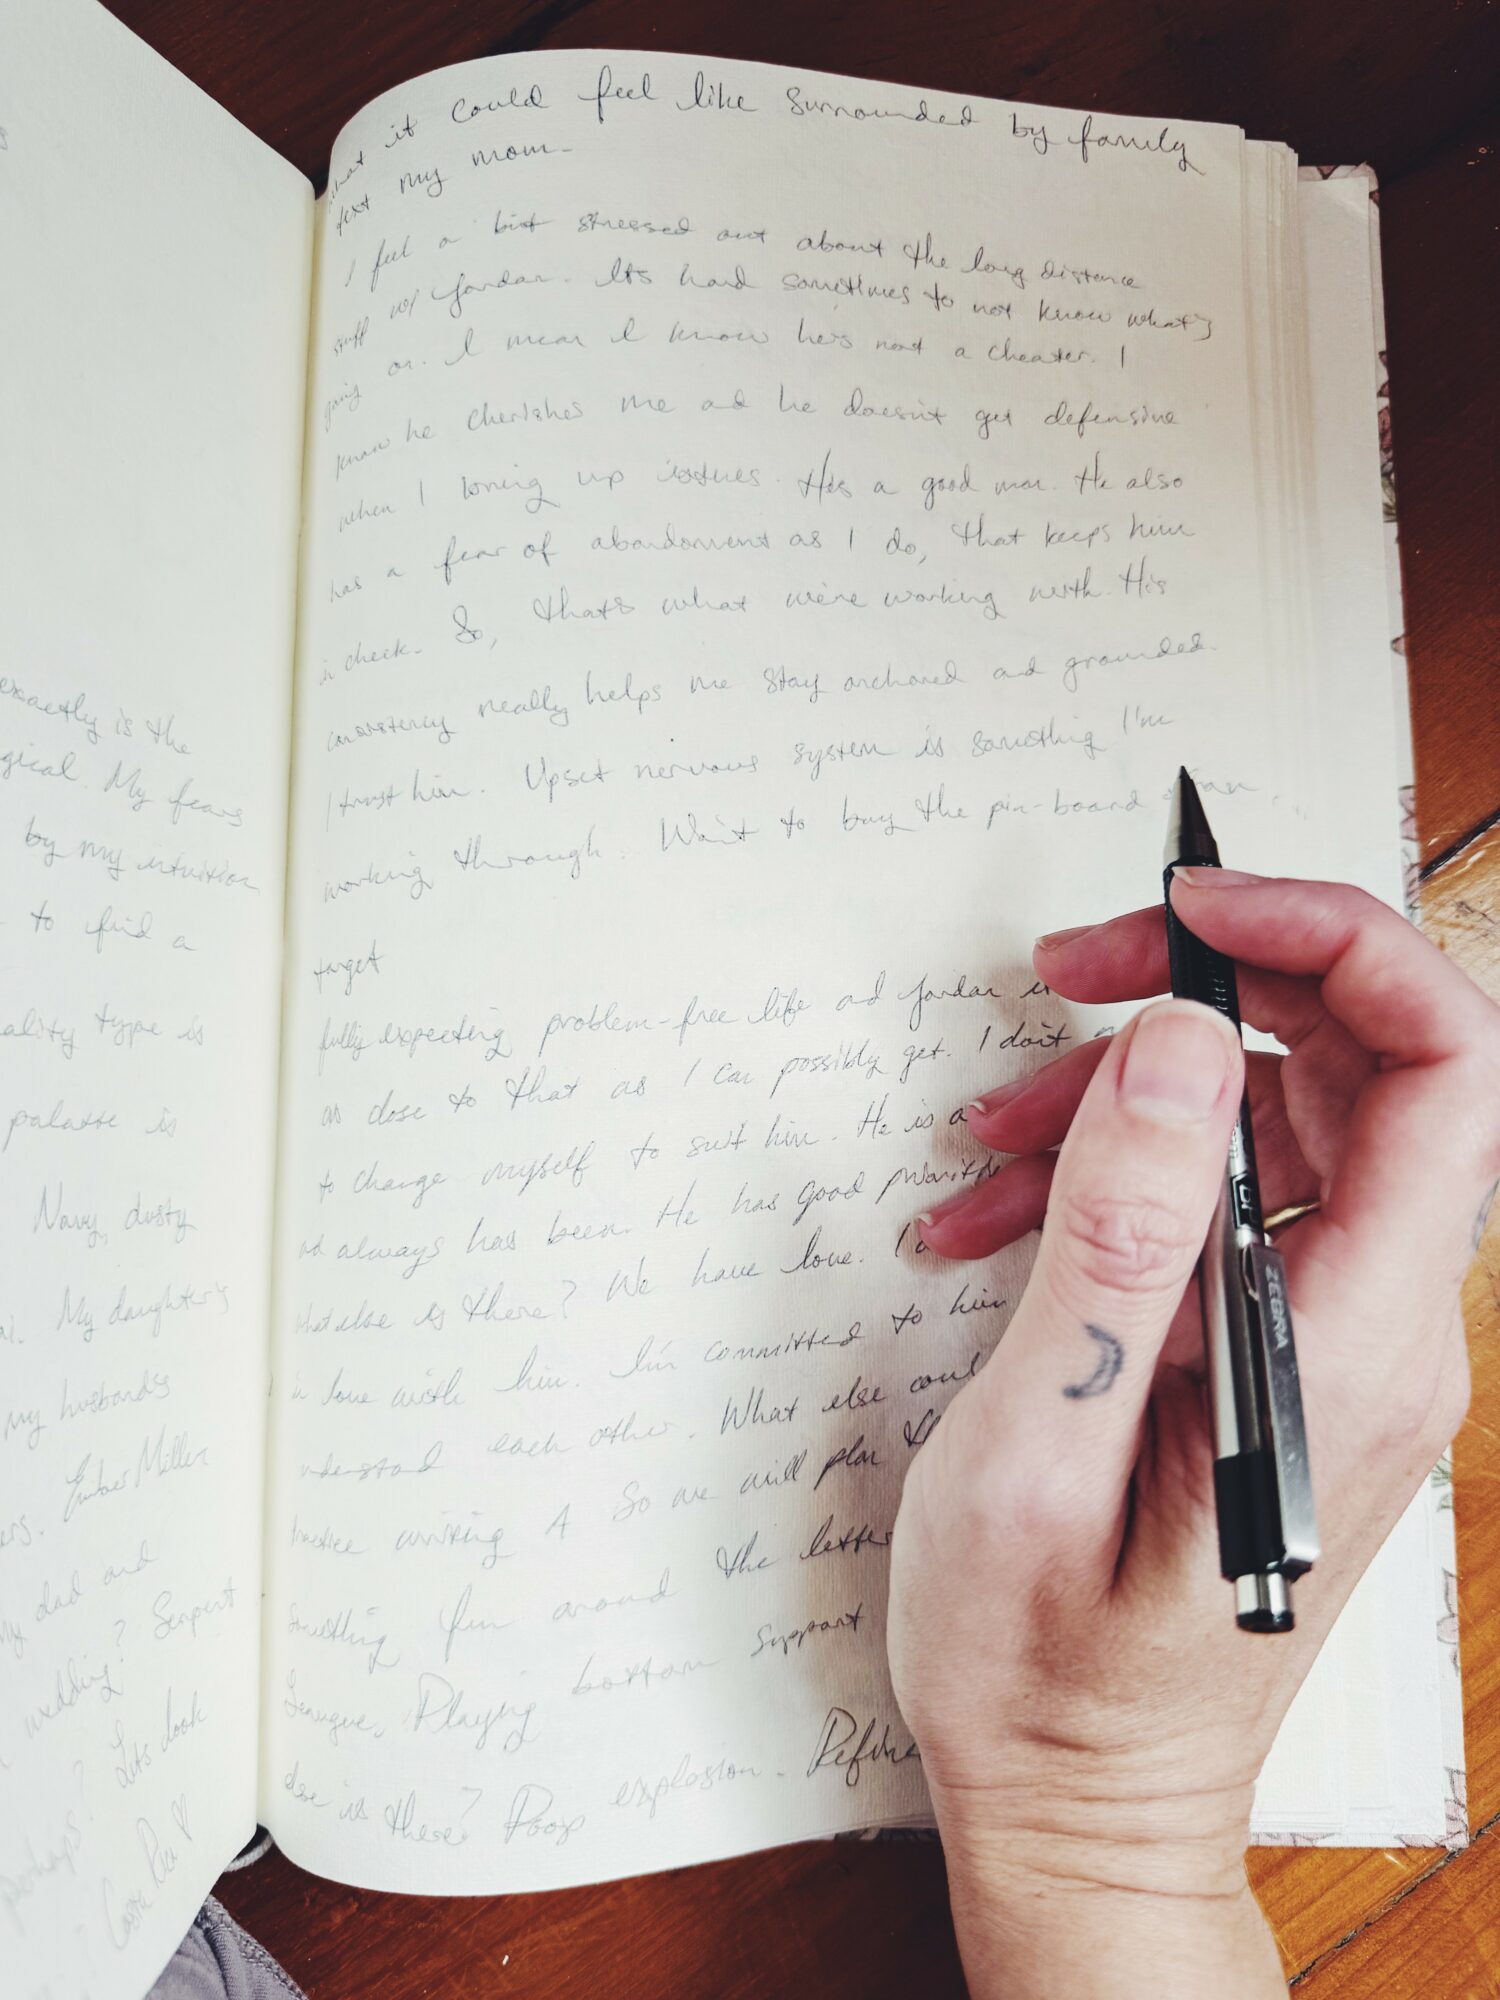 exactly is the
gical. My fears
by my intuition
to find a
ality type is
palatte is
Navy, dusty
My daughter's
my husbands
ers. Ember Miller
my dad and
wedding? Serpent
perhaps? Lets look
? Costa Rica ♡
what it could feel like surrounded by family
text my mom-
I feel a bit stressed out about the long distance
stuff w/ Jordan. Its hard sometimes to not know what's
going on. I mean I know he's not a cheater. I
know he cherishes me and he doesn't get defensive
when I bring up issues. He's a good man. He also
has a fear of abandonment as I do, that keeps him
in check. So, thats what we're working with. His
consistency really helps me stay anchored and grounded.
I trust him. Upset nervous system is something I'm
working through. Want to buy the pin-board
target
fully expecting problem-free life and Jordan is
as close to that as I can possibly get. I don't
to change myself to suit him. He is a
and always has been. He has good priorities
what else is there? We have love. I a
in love with him. I'm committed to him
understand each other. What else coul
Practice writing A So we will plan th
something fun around the letter
League, Playing bottom support
else is there? Poop explosion. Refine
ZEBRA